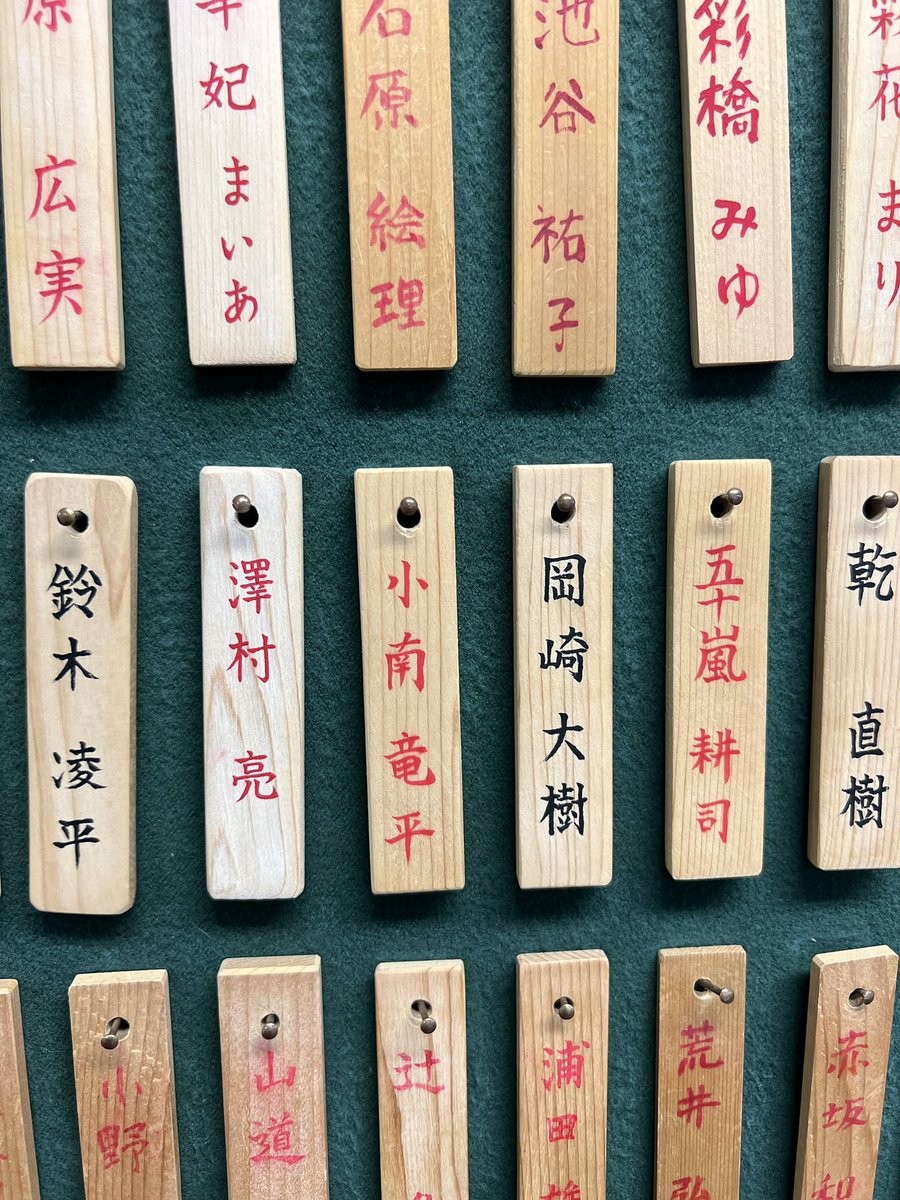 彩花 まり
彩橋 みゆ
池谷 祐子
石原 絵理
妃 まいあ
原 広実
乾 直樹
五十嵐 耕司
岡崎 大樹
小南 竜平
澤村 亮
鈴木 凌平
赤坂
荒井 弘
浦田
辻
山道
小野